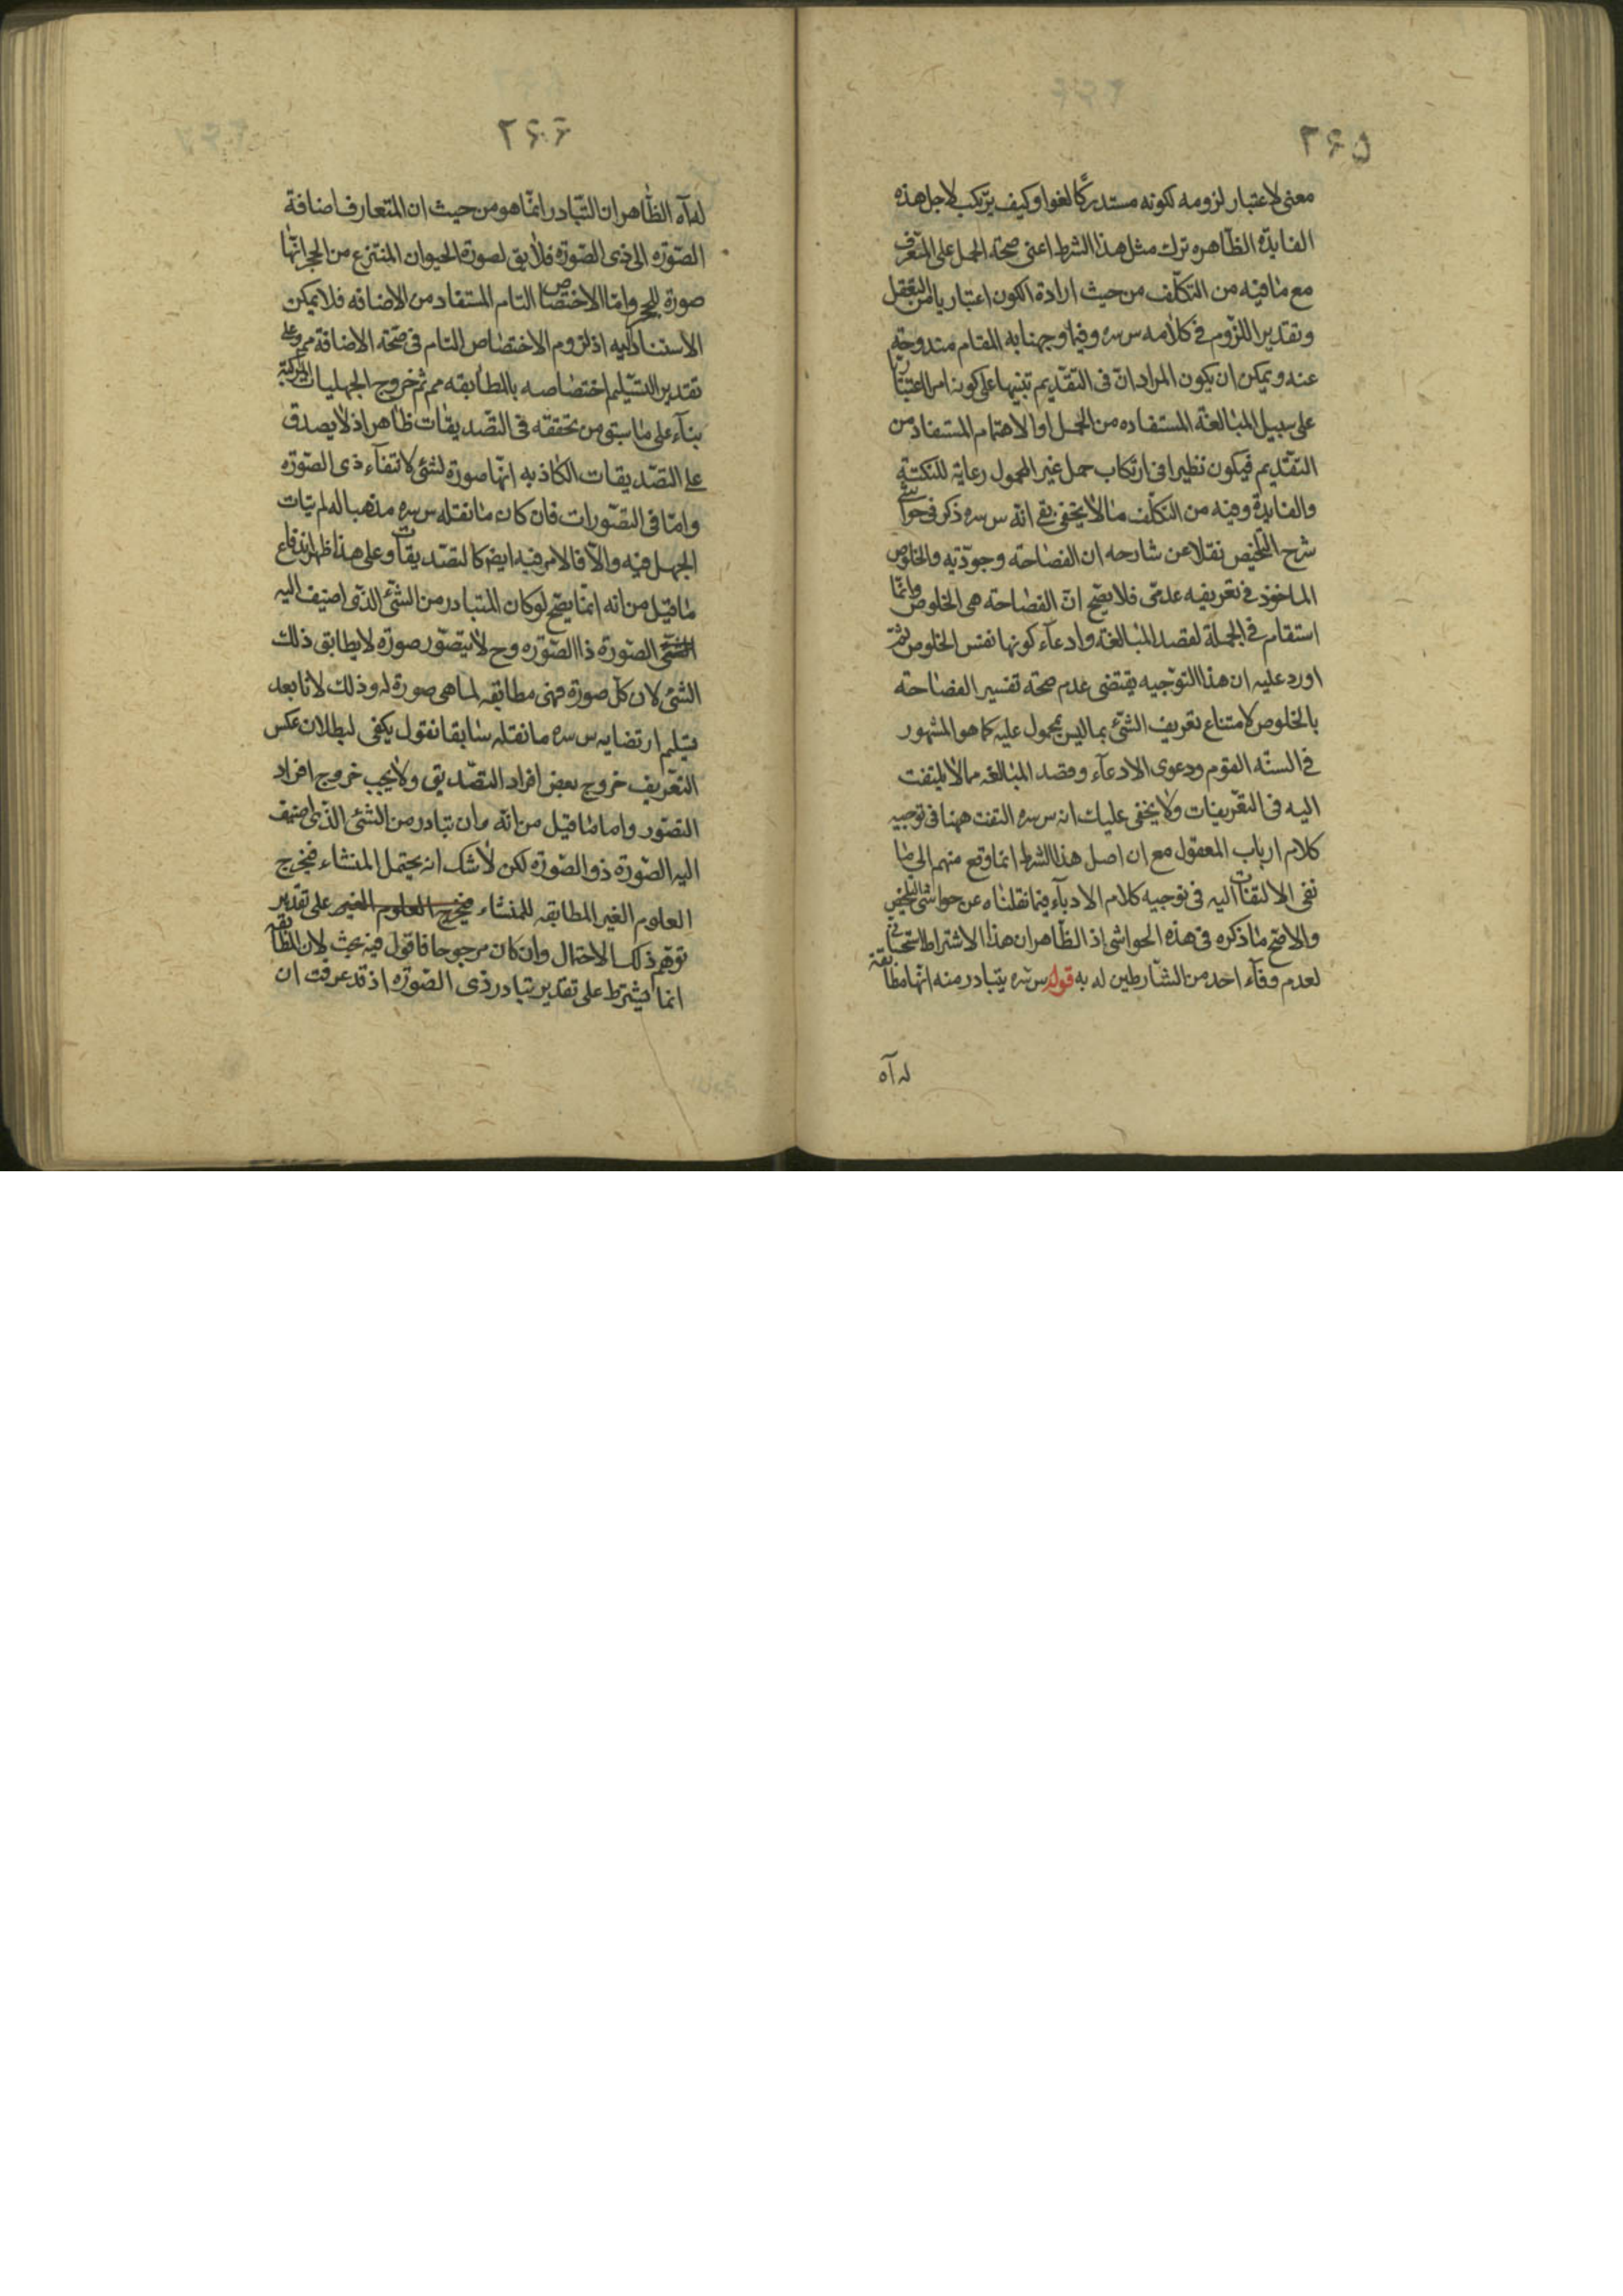 ٢۶۵
معنى لاعتبار لزومه لكونه مستدركا لغوا وكيف يرتكب لاجل هذه
الفايدة الظاهره ترك مثل هذا الشرط اعنى صحة الحمل على المعرف
مع ما فيه من التكلف من حيث ارادة الكون اعتباريا من التعقل
وتقدير اللزوم فى كلامه س سره وفيما وجهنا به المقام مندوحة
عنه ويمكن ان يكون المراد ان فى التقديم تنبيها على كونه امرا اعتباريا
على سبيل المبالغة المستفاده من الحمل او الاهتمام المستفاد من
التقديم فيكون نظيرا فى ارتكاب حمل غير المحمول رعاية للنكتة
والفايدة وفيه من التكلف ما لا يخفى بقى انه س سره ذكر فى حواشى
شرح التلخيص نقلا عن شارحه ان الفصاحة وجوديه والخلوص
الماخوذ فى تعريفيه عدمى فلا يصح ان الفصاحة هى الخلوص وانما
استقام فى الجملة لقصد المبالغة وادعاء كونها نفس الخلوص ثم
اورد عليه ان هذا التوجيه يقتضى عدم صحة تفسير الفصاحة
بالخلوص لامتناع تعريف الشئ بما ليس بمحمول عليه كما هو المشهور
فى السنة القوم ودعوى الادعاء وقصد المبالغه مما لا يلتفت
اليه فى التعريفات ولا يخفى عليك انه س سره التفت ههنا فى توجيه
كلام ارباب المعقول مع ان اصل هذا الشرط انما وقع منهم الى ما
نفى الالتفات اليه فى توجيه كلام الادباء فيما نقلناه عن حواشى التلخيص
والاصح ما ذكره فى هذه الحواشى اذ الظاهر ان هذا الاشتراط استحبابى
لعدم وفاء احد من الشارطين له به قوله س سره يتبادر منه انها مطابقة
له آه
٢۶۶
له آه الظاهر ان التبادر انما هو من حيث ان المتعارف اضافة
الصورة الى ذى الصورة فلا يق لصورة الحيوان المنتزع من الحجر انها
صورة للحجر واما الاختصاص التام المستفاد من الاضافه فلا يمكن
الاستناد اليه اذ لزوم الاختصاص التام فى صحة الاضافة مم وعلى
تقدير التسليم اختصاصه بالمطابقه مم ثم خروج الجهليات المركبة
بناء على ما سبق من تحققه فى التصديقات ظاهر اذ لا يصدق
على التصديقات الكاذبه انها صورة لشئ لانتفاء ذى الصورة
واما فى التصورات فان كان ما نقله س سره مذهبا له لم يتات
الجهل فيه والا فالامر فيه ايضا كالتصديقات وعلى هذا ظهر اندفاع
ما قيل من انه انما يصح لو كان المتبادر من الشئ الذى اضيف اليه
الصورة ذا الصورة وح لا يتصور صورة لا يطابق ذلك
الشئ لان كل صورة فهى مطابقه لما هى صورة له وذلك لانا بعد
تسليم ارتضايه س سره ما نقله سابقا نقول يكفى لبطلان عكس
التعريف خروج بعض افراد التصديق ولا يجب خروج افراد
التصور واما ما قيل من انه وان تبادر من الشئ الذى اضيف
اليه الصورة ذو الصورة لكن لا شك انه يحتمل المنشاء فيخرج
العلوم الغير المطابقه للمنشاء فيخرج العلوم الغير على تقدير
توهم ذلك الاحتمال وان كان مرجوحا فاقول فيه بحث لان المطابقه
انما يشترط على تقدير تبادر ذى الصورة اذ قد عرفت ان